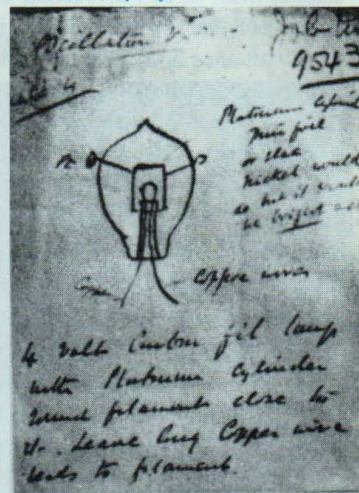 Oscillation
9543
Platinum cylinder
thin foil
or else
Nickel would
do but it
be bright
Copper wires
4 volt Carbon fil lamp
with Platinum cylinder
round filaments close to
it. Leave long Copper wire
leads to filament.